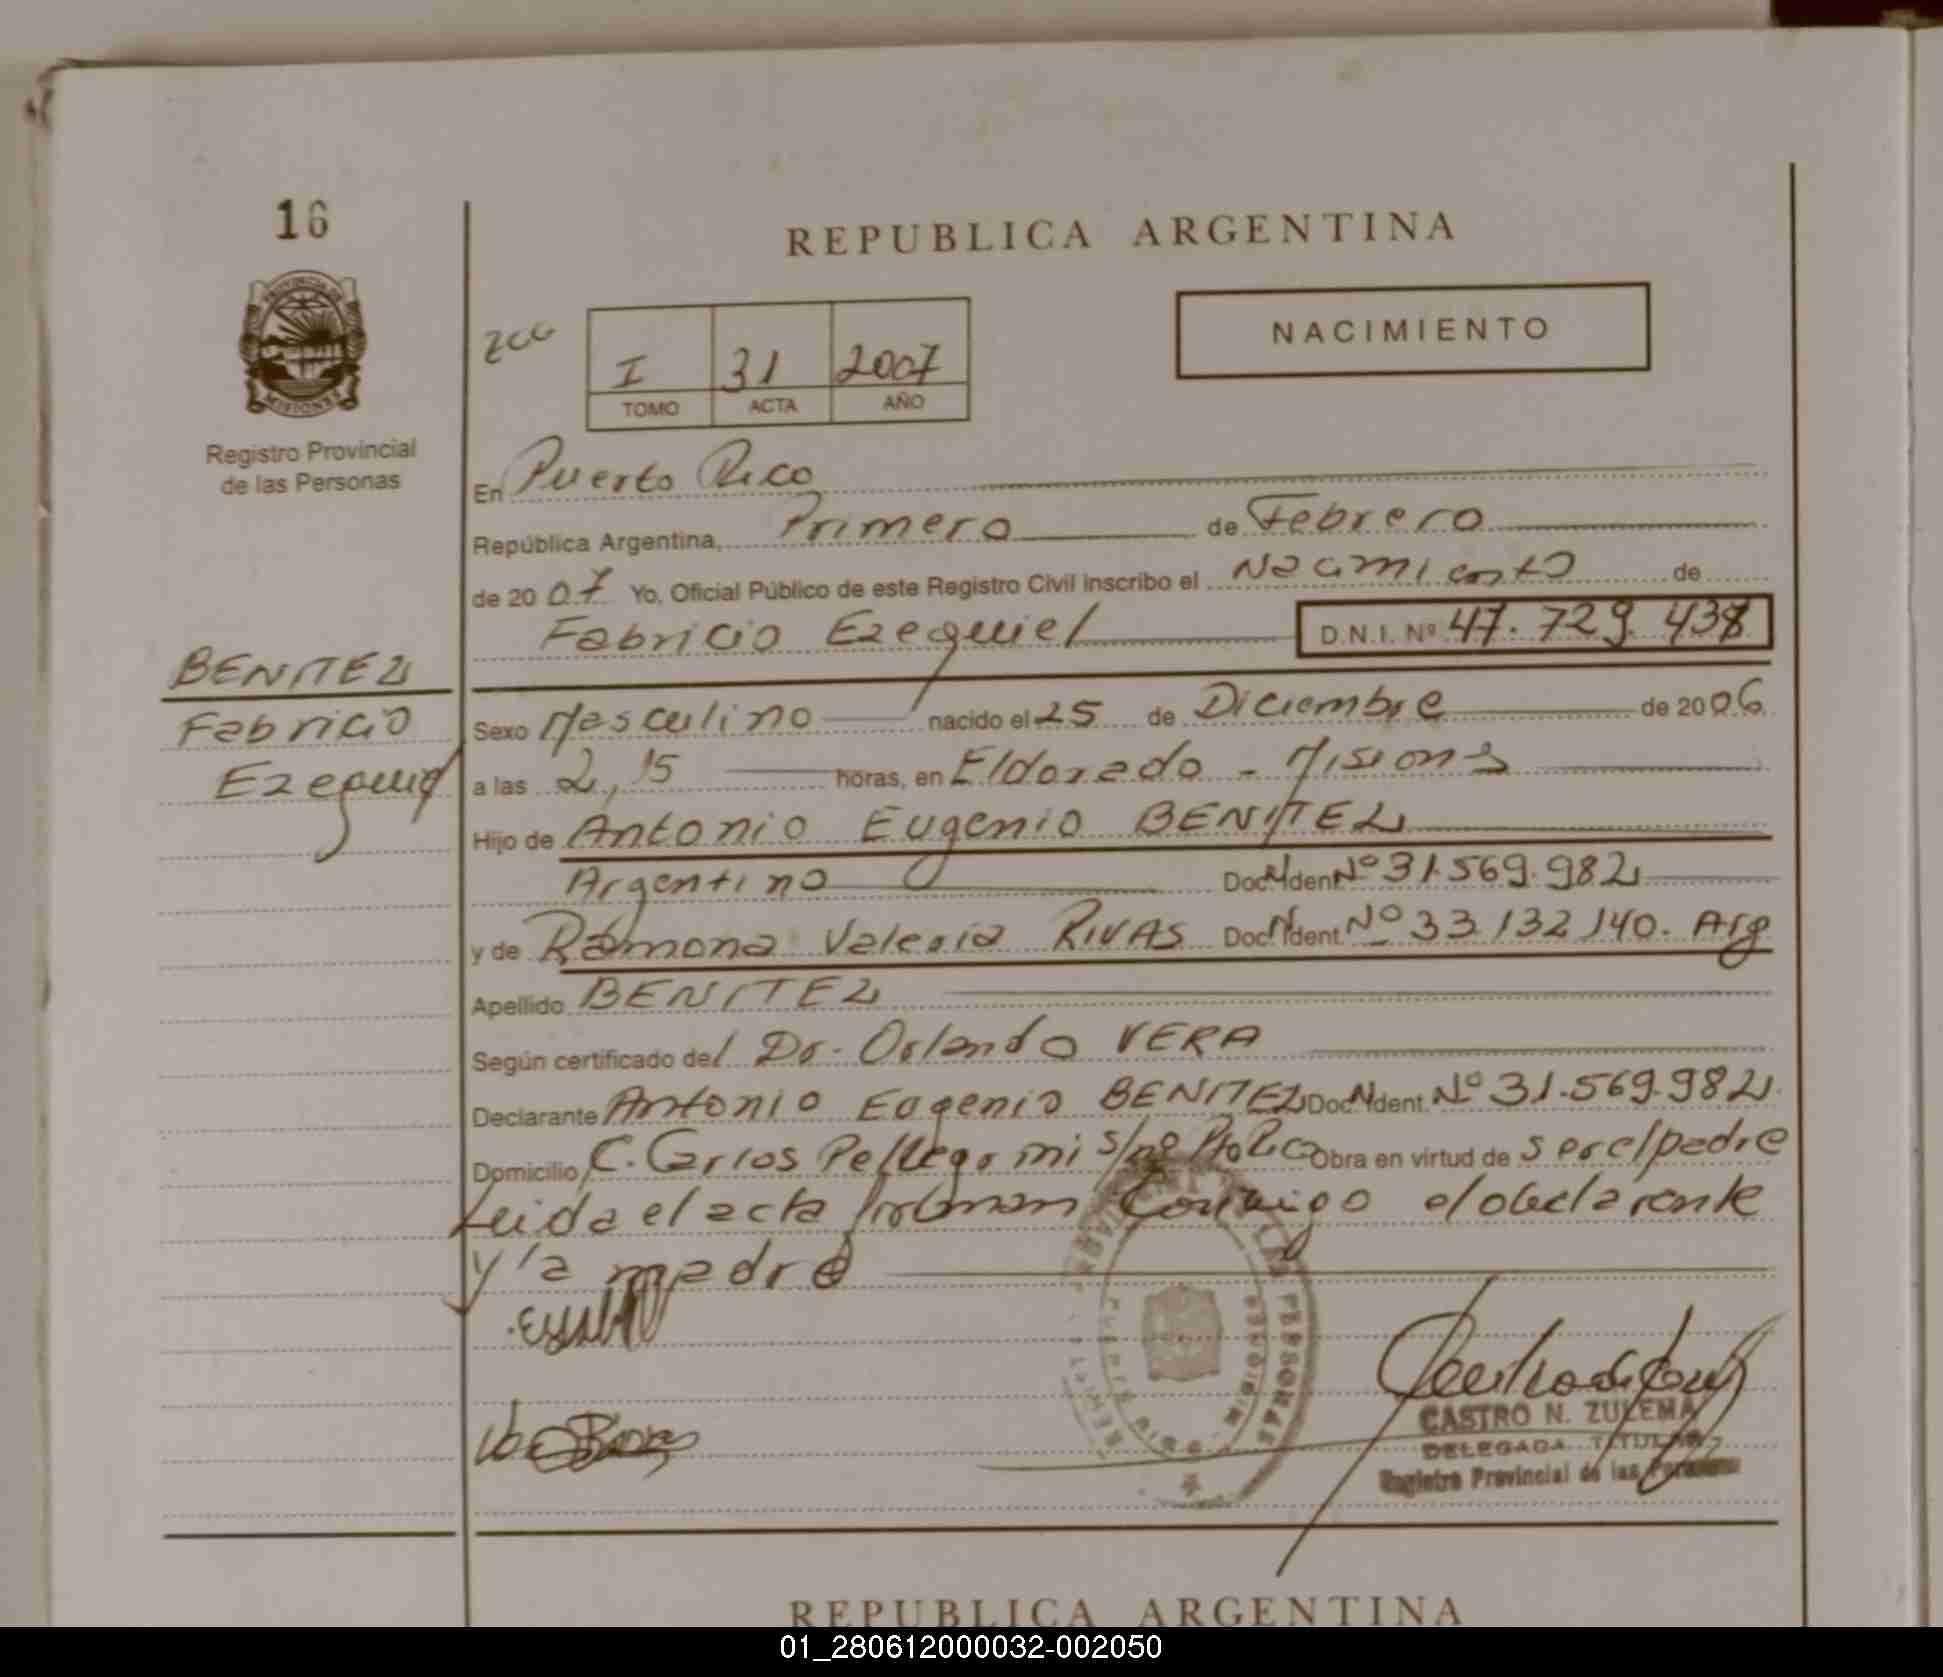 16
REPUBLICA ARGENTINA
NACIMIENTO
I 31 2007
TOMO ACTA AÑO
PROVINCIA DE
MISIONES
Registro Provincial
de las Personas
En Puerto Rico
República Argentina, Primero de Febrero
de 2007 Yo, Oficial Público de este Registro Civil inscribo el Nacimiento de
Fabricio Ezequiel D.N.I. Nº 47.729.438
BENITEZ
Fabricio
Ezequiel
Sexo Masculino nacido el 25 de Diciembre de 2006
a las 2,15 horas, en Eldorado - Misiones
Hijo de Antonio Eugenio BENITEZ
Argentino Doc. Ident. Nº 31.569.982
y de Ramona Valeria RIVAS Doc. Ident. Nº 33.132.140. Arg
Apellido BENITEZ
Según certificado del Dr. Orlando VERA
Declarante Antonio Eugenio BENITEZ Doc. Ident. Nº 31.569.982
Domicilio C. Carlos Pellegrini s/nº Pto Rico Obra en virtud de ser el padre
Leida el acta firman conmigo el declarante
y la madre
CASTRO N. ZULEMA
DELEGADA TITULAR
Registro Provincial de las Personas
REPUBLICA ARGENTINA
01_280612000032-002050